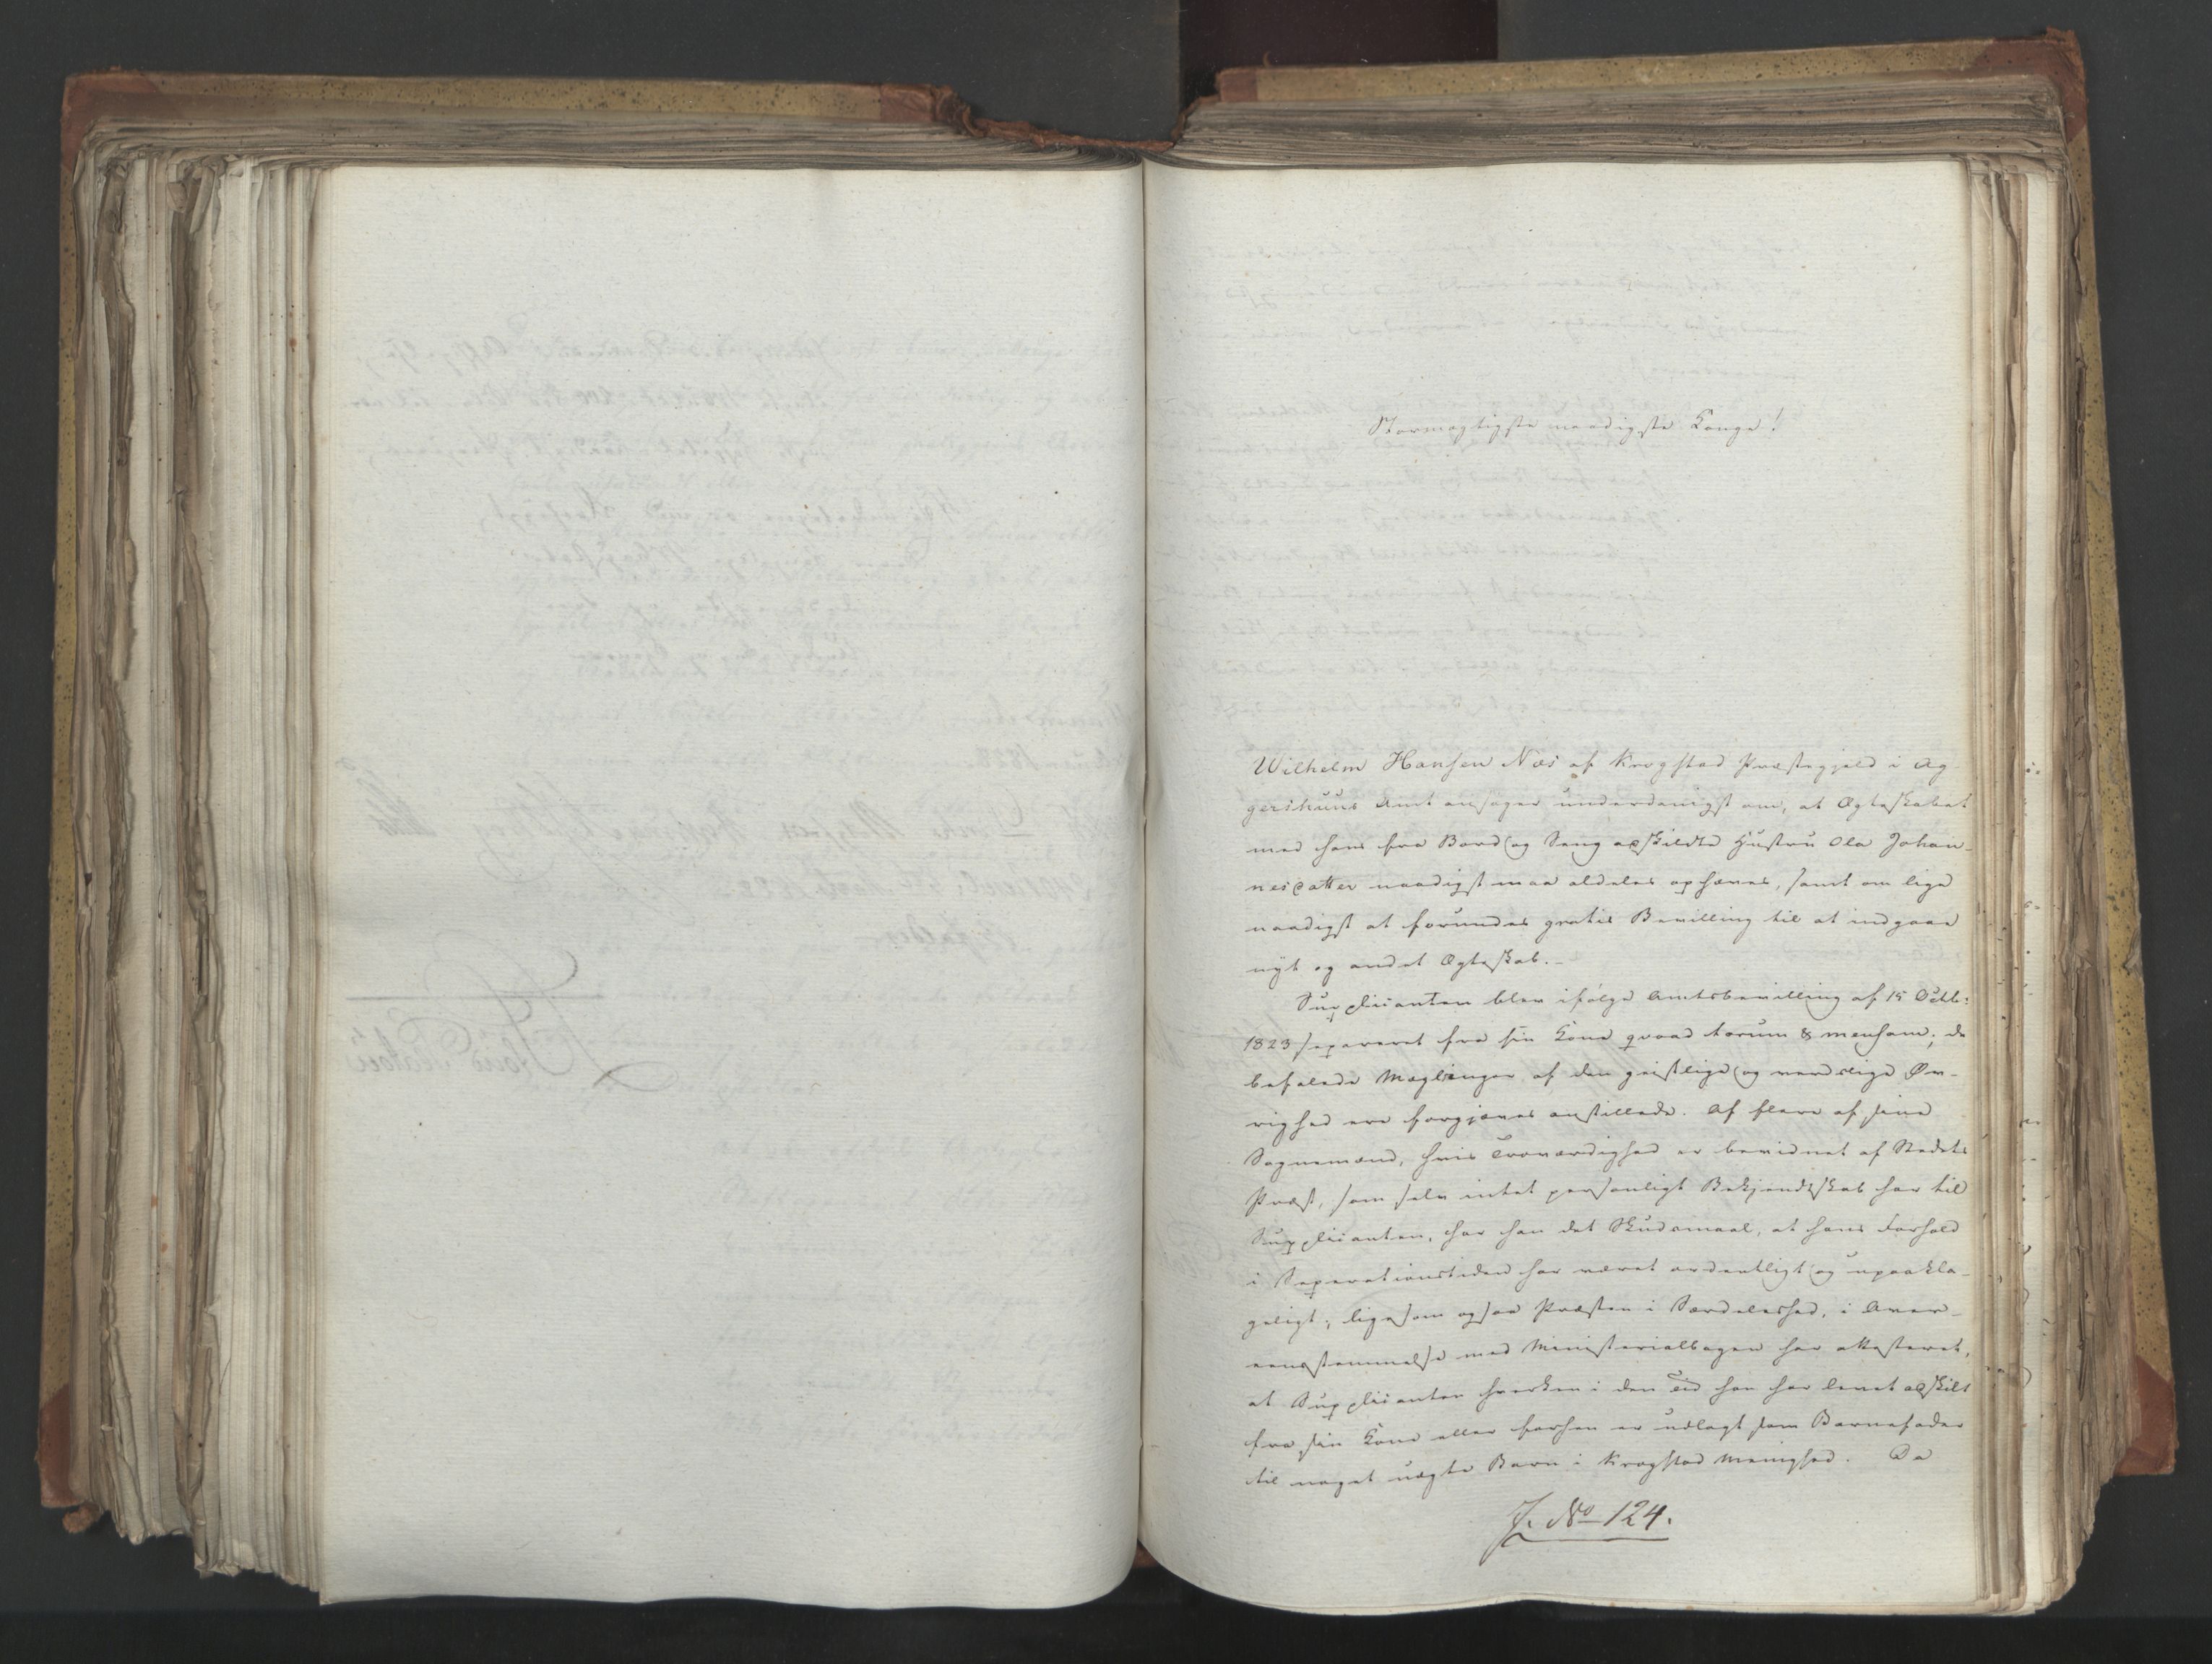 Stormægtigste naadigste Konge!
Wilhelm Hansen Næs af Krogstad Præstegjeld i Ag
gershuus Amt ansøger underdanigst om, at Ægteskabet
med hans fra Bord og Seng adskildte Hustru Ola Johan-
nesdatter naadigst maa aldeles ophæves, samt om lige
naadigst at forundes gratis Bevilling til at indgaae
nyt og andet Ægteskab.-
Supplicanten blev ifølge Amtsbevilling af 15 Octb:
1823 separeret fra sin Kone qvoad torum & mensam; de
befalede Mæglinger af den geistlige og verdslige Øv-
righed ere forgjæves anstillede. Af flere af sine
Sognemænd, hvis Troværdighed er bevidnet af Stedets
Præst, som selv intet personligt Bekjendtskab har til
Supplicanten, har han det Skudsmaal, at hans Forhold
i Separationstiden har været ordentligt og upaakla-
geligt; ligesom ogsaa Præsten i Særdeleshed, i Over-
eensstemmelse med Ministerialbogen har attesteret,
at Supplicanten hverken i den Tid han har levet adskilt
fra sin Kone eller forhen er udlagt som Barnefader
til noget uægte Barn i Krogstad Menighed. Da
J. No 124.